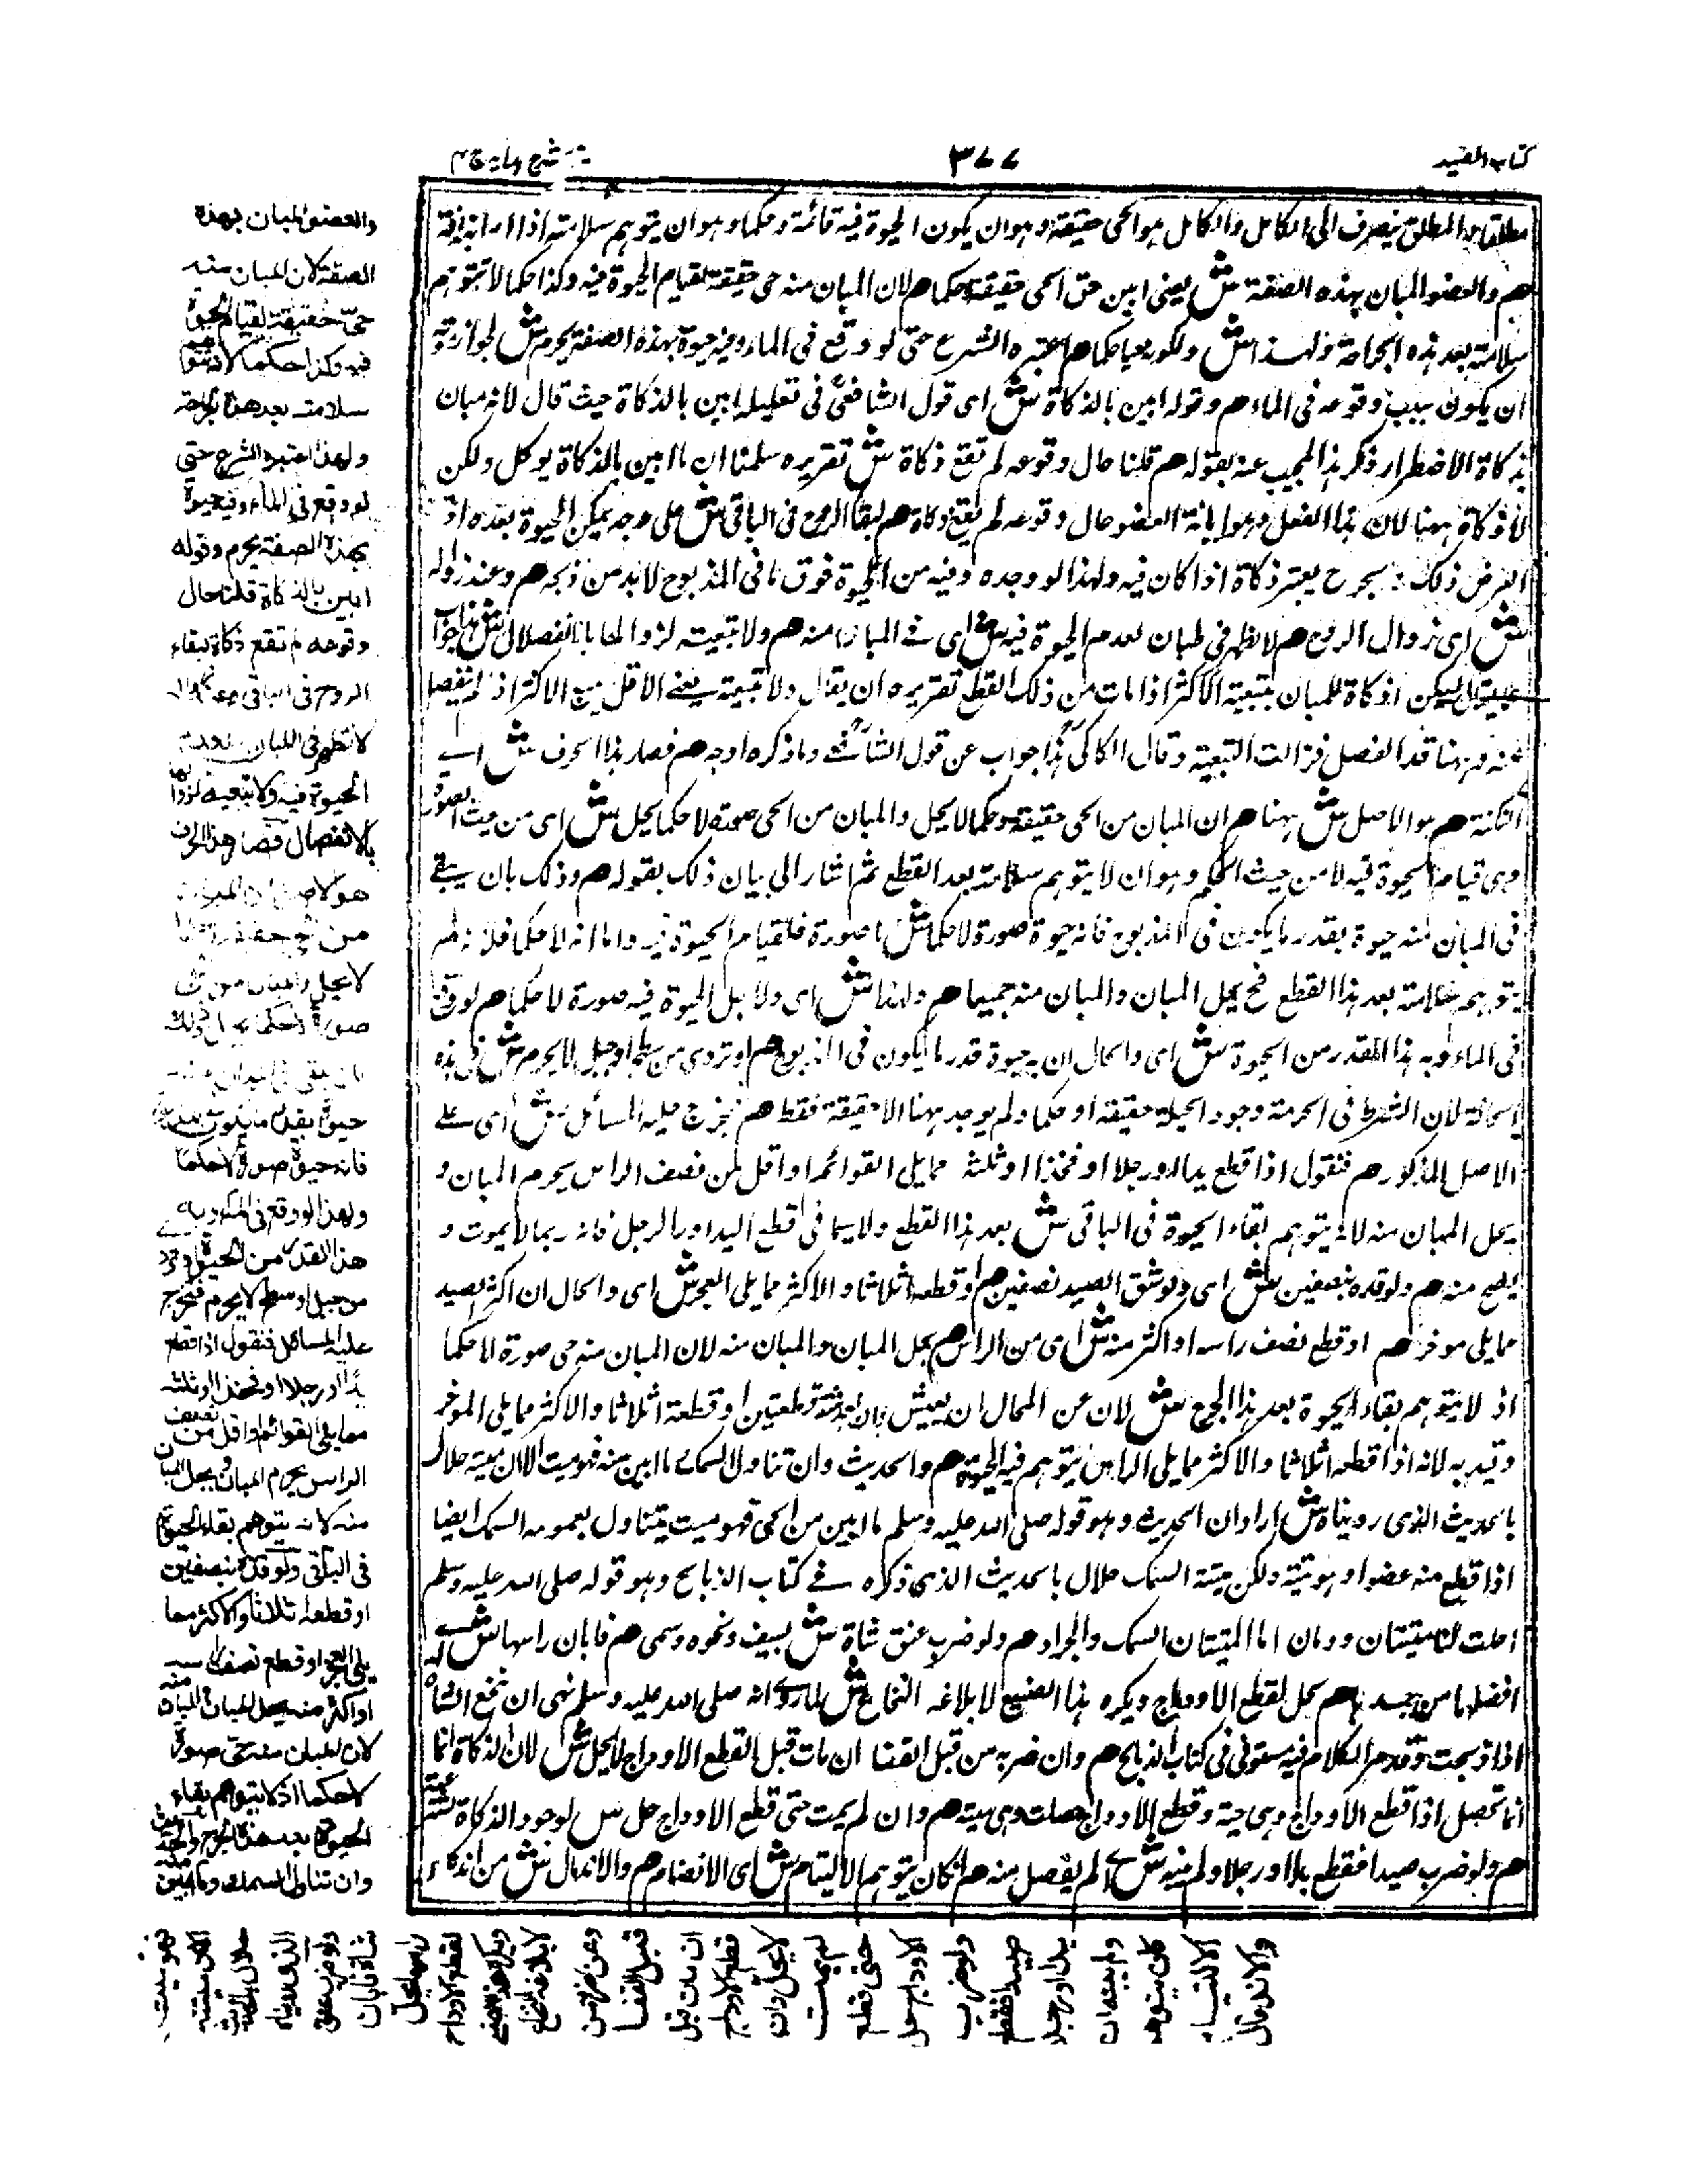 كتاب الصيد
٣٧٧
شرح هدايه ج ٤
مطلقا والمطلق ينصرف الى الكامل والكامل هو الحى حقيقة وهو ان يكون الحيوة فيه قائمة وحكما وهو ان يتوهم سلامته اذا
هم والعضو المبان بهذه الصفة ش يعنى ابين من الحى حقيقة وحكما هم لان المبان منه حى حقيقة لقيام الحيوة فيه وكذا حكما لانه يتوهم
سلامته بعد هذه الجراحة ولهذا ش ولكونه حيا حكما هم اعتبره الشرع حتى لو وقع فى الماء وفيه حيوة بهذه الصفة يحرم ش لجواز
ان يكون بسبب وقوعه فى الماء هم وقوله ابين بالذكاة ش اى قول الشافعى فى تعليله ابين بالذكاة حيث قال لانه مبان
بذكاة الاضطرار ذكر هذا المجيب عنه بقوله هم قلنا حال وقوعه لم تقع ذكاة ش تقريره سلمنا ان ما ابين بالذكاة يوكل ولكن
لا ذكاة ههنا لان هذا الفعل وهو ابانة العضو حال وقوعه لم يقع ذكاة هم لبقاء الروح فى الباقى ش على وجه يمكن الحيوة بعده اذ
الفرض ذلك يعتبر ذكاة اذا كان فيه ولهذا لو وجده وفيه من الحيوة فوق ما فى المذبوح لابد من ذبحه هم وعند زواله
ش اى زوال الروح هم لا يظهر فى المبان لعدم الحيوة فيه ش اى فى المبان منه هم ولا تبعية لزوالها بالانفصال ش هذا جواب
اذ ذكاة للمبان بتبعية الاكثر اذا مات من ذلك القطع تقريره ان يقال ولا تبعية يعنى الاقل يتبع الاكثر اذا لم ينفصل
عنه وههنا قد انفصل فزالت التبعية وقال الكاكى هذا جواب عن قول الشافعى وما ذكره اوجه هم فصار هذا الحرف ش اے
النكتة هم هو الاصل ش ههنا هم ان المبان من الحى حقيقة وحكما لا يحل والمبان من الحى صورة لا حكما يحل ش اى من حيث الصورة
وهى قيام الحيوة فيه لا من حيث الحكم وهو ان لا يتوهم سلامته بعد القطع ثم اشار الى بيان ذلك بقوله هم وذلك بان يبقے
فى المبان منه حيوة بقدر ما يكون فى المذبوح فانه حيوة صورة لا حكما ش اما صورة فلقيام الحيوة فيه واما انه لا حكما فلانه لم
يتوهم سلامته بعد هذا القطع فح يحل المبان والمبان منه جميعا هم ولهذا ش اى ولاجل الحيوة فيه صورة لا حكما هم لو وقع
فى الماء وبه هذا القدر من الحيوة ش اى والحال ان به حيوة قدر ما يكون فى المذبوح هم او تردى من سطح او جبل لا يحرم ش فى هذه
الحالة لان الشرط فى الحرمة وجود الحيوة حقيقة او حكما ولم يوجد ههنا الا حقيقة فقط هم فيخرج عليه المسائل ش اى على
الاصل المذكور هم فنقول اذا قطع يدا او رجلا او فخذا او ثلثه مما يلى القوائم او اقل من نصف الراس يحرم المبان و
يحل المبان منه لانه يتوهم بقاء الحيوة فى الباقى ش بعد هذا القطع ولا سيما فى قطع اليد او الرجل فانه ربما لا يموت و
يصح منه هم ولو قده بنصفين ش اى ولو شق الصيد نصفين هم او قطعه اثلاثا والاكثر مما يلى العجز ش اى والحال ان اكثر الصيد
مما يلى موخره هم او قطع نصف راسه او اكثر منه ش اى من الراس هم يحل المبان والمبان منه لان المبان منه حى صورة لا حكما
اذ لا يتوهم بقاء الحيوة بعد هذا الجرح ش لان عن المحال ان يعيش قطعتين او قطعة اثلاثا والاكثر مما يلى الموخر
وقيد به لانه اذا قطعه اثلاثا والاكثر مما يلى الراس يتوهم فيه الحيوة هم والحديث وان تناول السمك ما ابين منه فهو ميت الا ان ميته حلال
بالحديث الذى رويناه ش اراد ان الحديث وهو قوله صلى الله عليه وسلم ما ابين من الحى فهو ميت يتناول بعمومه السمك ايضا
اذا قطع منه عضوا وهو ميتة ولكن ميتة السمك حلال بالحديث الذى ذكره فے كتاب الذبائح وهو قوله صلى الله عليه وسلم
احلت لنا ميتتان ودمان اما الميتتان السمك والجراد هم ولو ضرب عنق شاة ش بسيف ونحوه وسمى هم فابان راسها ش
افضلها من جسدها هم يحل لقطع الاوداج ويكره هذا الصنيع لابلاغه النخاع ش لما روے انه صلى الله عليه وسلم نهى ان تنخع الشاة
اذا ذبحت وقد مر الكلام فيه مستوفى فى كتاب الذبائح هم وان ضربه من قبل القفا ان مات قبل القطع الاوداج لا يحل ش لان الذكاة انما
انما تحصل اذا قطع الاوداج وهى حية وقطع الاوداج حصلت وهى ميتة هم وان لم يمت حتى قطع الاوداج حل ش لوجود الذكاة
هم ولو ضرب صيدا فقطع يدا او رجلا ولم يبنه ش اى لم يفصل منه هم ان كان يتوهم الالتيام ش اى الانضمام هم والاندمال ش من
والعضو المبان بهذه
الصفة لان المبان منه
حىّ حقيقة لقيام الحيوة
فيه وكذا حكما لانه يتوهم
سلامته بعد هذه الجراحة
ولهذا اعتبره الشرع حتى
لو وقع فى الماء وفيه حيوة
بهذه الصفة يحرم وقوله
ابين بالذكاة قلنا حال
وقوعه لم تقع ذكاة لبقاء
الروح فى الباقى وعند زواله
لا تظهر فى المبان لعدم
الحيوة فيه ولا تبعية لزوالها
بالانفصال فصار هذا الحرف
هو الاصل ان المبان
من الحى حقيقة وحكما
لا يحل والمبان من الحى
صورة لا حكما يحل وذلك
بان يبقى فى المبان منه
حيوة بقدر ما يكون فى المذبوح
فانه حيوة صورة لا حكما
ولهذا لو وقع فى الماء وبه
هذا القدر من الحيوة او تردى
من جبل او سطح لا يحرم فتخرج
عليه المسائل فنقول اذا قطع
يدًا او رجلا او فخذا او ثلثه
مما يلى القوائم او اقل من نصف
الراس يحرم المبان ويحل المبان
منه لانه يتوهم بقاء الحيوة
فى الباقى ولو قده بنصفين
او قطعه اثلاثا والاكثر مما
يلى العجز او قطع نصف راسه
او اكثر منه يحل المبان والمبان منه
لان المبان منه حىّ صورة
لا حكما اذ لا يتوهم بقاء
الحيوة بعد هذا الجرح والحديث
وان تناول السمك وما ابين منه
فهو ميت
الا ان ميتته
حلال بالحديث
الذى رويناه
ولو ضرب عنق
شاة فابان
راسها يحل
لقطع الاوداج
ويكره هذا الصنيع
لابلاغه النخاع
ومن ضرب من
قبل القفا
ان مات قبل
قطع الاوداج
لا يحل وان
لم يمت
حتى قطع
الاوداج حل
ولو ضرب
صيدا فقطع
يدا او رجلا
ولم يبنه ان
كان يتوهم
الالتيام
والاندمال